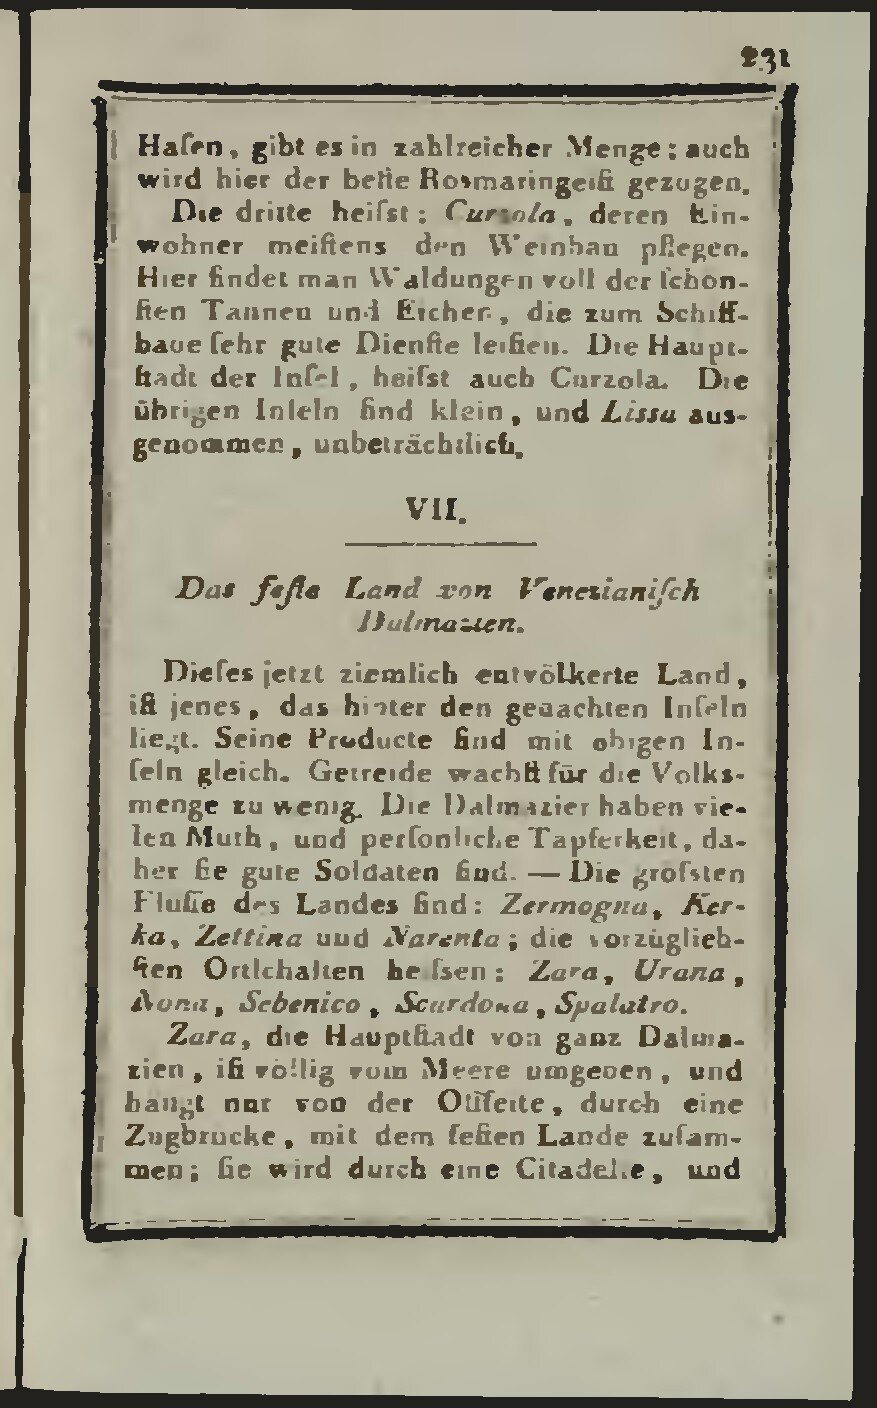 231
Haſen, gibt es in zahlreicher Menge; auch
wird hier der beſte Rosmaringeiſt gezogen.
Die dritte heiſst: Curzola, deren Ein-
wohner meiſtens den Weinbau pflegen.
Hier findet man Waldungen voll der ſchön-
ſten Tannen und Eichen, die zum Schiff-
baue ſehr gute Dienſte leiſten. Die Haupt-
ſtadt der Inſel, heiſst auch Curzola. Die
übrigen Inſeln ſind klein, und Lissa aus-
genommen, unbeträchtlich.
VII.
Das feſte Land von Venezianiſch
Dalmazien.
Dieſes jetzt ziemlich entvölkerte Land,
iſt jenes, das hinter den gedachten Inſeln
liegt. Seine Producte ſind mit obigen In-
ſeln gleich. Getreide wachſt für die Volks-
menge zu wenig. Die Dalmazier haben vie-
len Muth, und perſönliche Tapferkeit, da-
her ſie gute Soldaten ſind. — Die gröſsten
Flüſſe des Landes ſind: Zermogna, Ker-
ka, Zettina und Narenta; die vorzüglich-
ſten Ortſchaften heiſsen: Zara, Urana,
Nona, Sebenico, Scardona, Spalatro.
Zara, die Hauptſtadt von ganz Dalma-
zien, iſt völlig vom Meere umgeben, und
hängt nur von der Oſtſeite, durch eine
Zugbrücke, mit dem feſten Lande zuſam-
men; ſie wird durch eine Citadelle, und